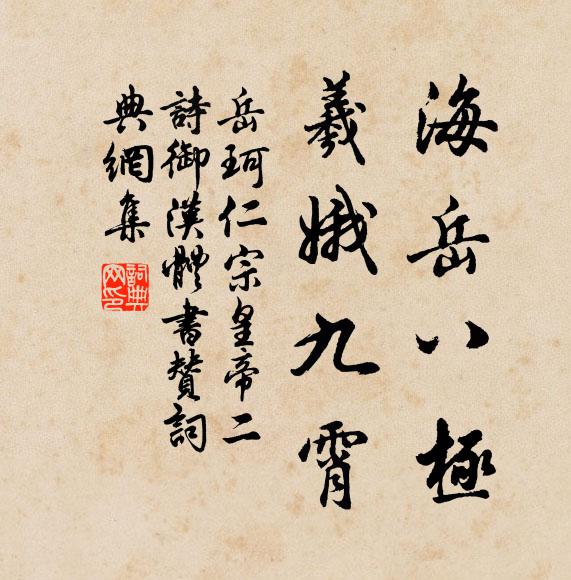 海岳八極
羲娥九霄
岳珂仁宗皇帝二
詩御漢體書贊詞
典網集
詞典網印